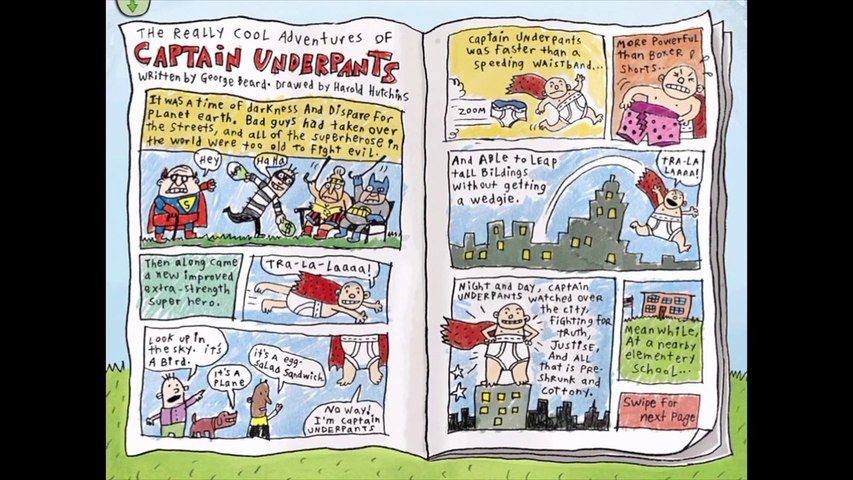 The Really Cool Adventures of
CAPTAIN UNDERPANTS
Written by George Beard. Drawed by Harold Hutchins
It was a time of darkness and dispare for
planet earth. Bad guys had taken over
the streets, and all of the superherose in
the world were too old to fight evil.
Hey
Ha Ha
S
$
$
Then along came
a new improved
extra-strength
super hero.
TRA-LA-Laaaa!
Look up in
the sky. it's
A Bird.
it's A
PLANE
it's a egg-
salad sandwich
No way!
I'm captain
UNDERPANTS
Captain Underpants
was faster than a
speeding waistband...
ZOOM
More Powerful
than Boxer
shorts...
And ABLE to Leap
tall Bildings
without getting
a wedgie.
TRA-LA
LAAAA!
Night and Day, Captain
UNDERPANTS watched over
the city,
fighting for
truth,
Justise,
And all
that is Pre-
shrunk and
cottony.
Meanwhile,
At a nearby
elementery
school...
Swipe for
next Page